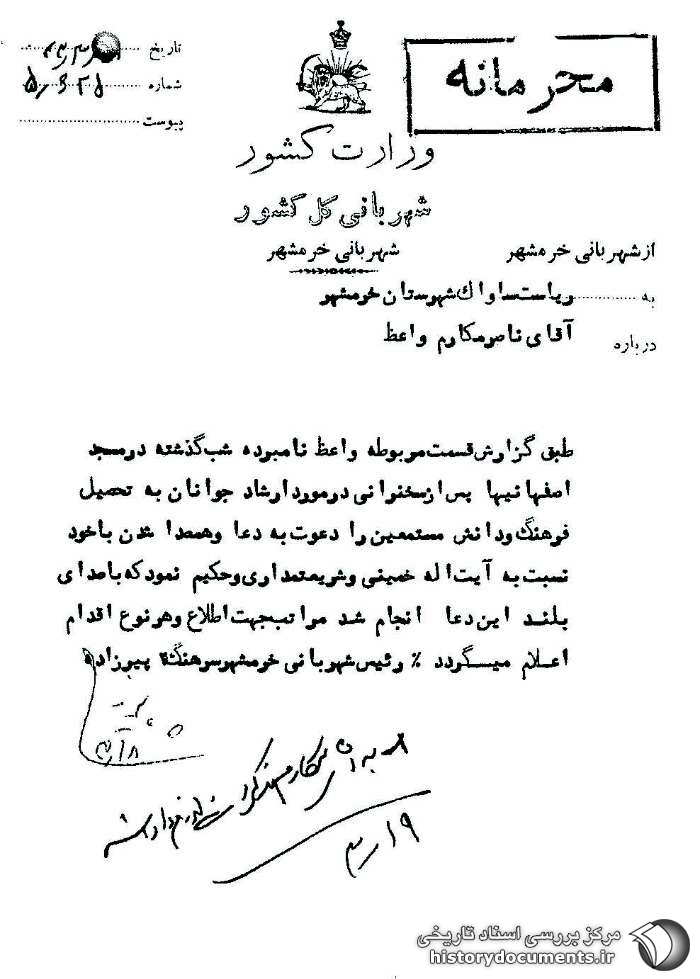 محرمانه
تاریخ
شماره
پیوست
وزارت کشور
شهربانی کل کشور
از شهربانی خرمشهر
شهربانی خرمشهر
به ریاست ساواك شهرستان خرمشهر
درباره آقای ناصر مکارم واعظ
طبق گزارش قسمت مربوطه واعظ نامبرده شب گذشته در مسجد
اصفهانیها پس از سخنرانی در مورد ارشاد جوانان به تحصیل
فرهنگ و دانش مستمعین را دعوت به دعا وهمصدا شدن با خود
نسبت به آیت اله خمینی وشریعتمداری وحکیم نمود که با صدای
بلند این دعا انجام شد مراتب جهت اطلاع وهر نوع اقدام
اعلام میگردد ٪ رئیس شهربانی خرمشهر سرهنگ ۲ پیرزاده
مرکز بررسی اسناد تاریخی
historydocuments.ir